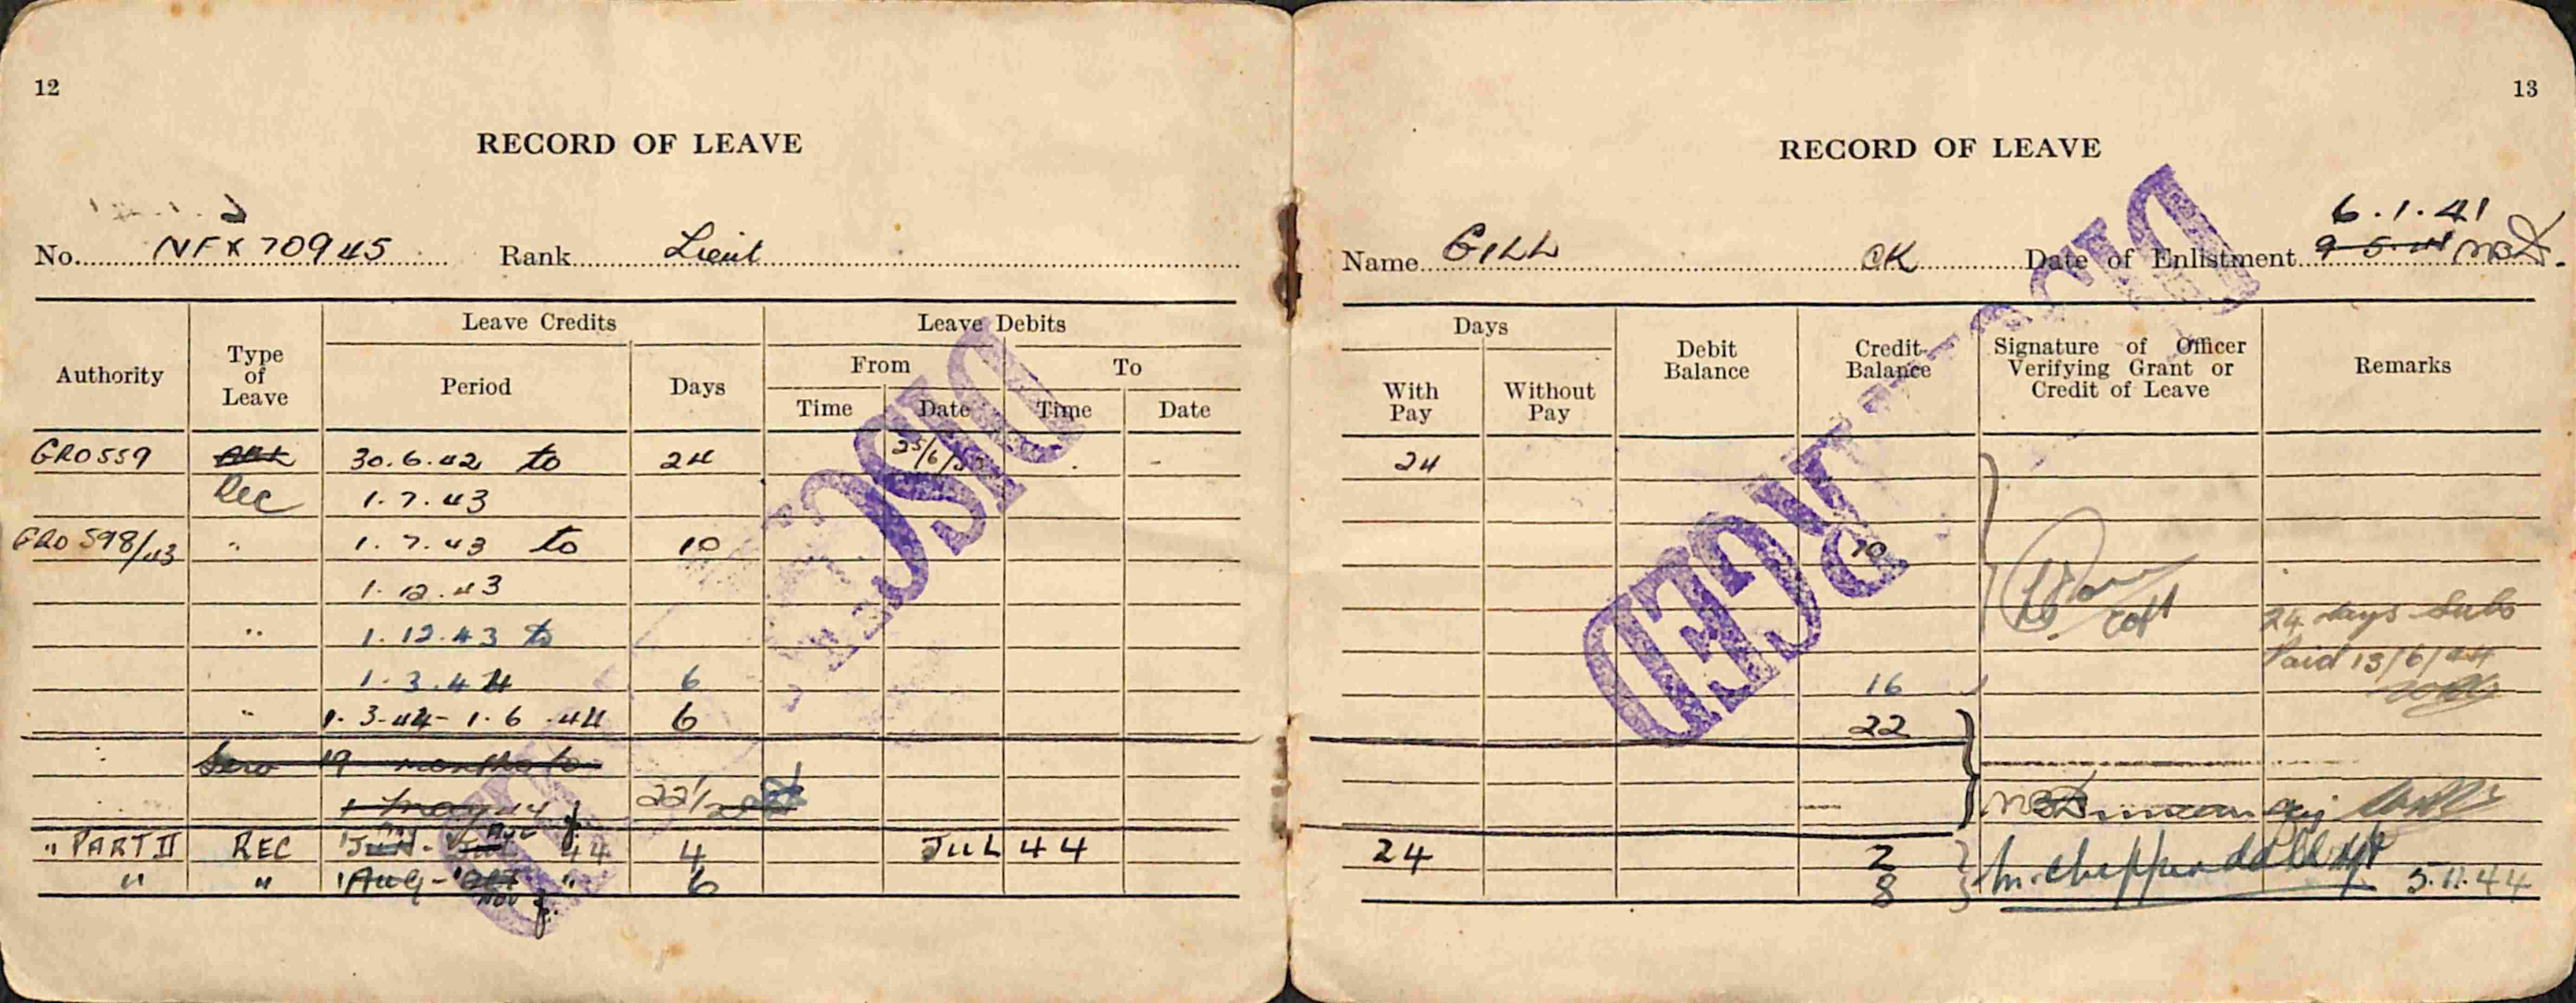 12
RECORD OF LEAVE
No. NFX 70945 Rank Lieut
Authority Type of Leave Leave Credits Leave Debits
Period Days From To
Time Date Time Date
GRO 559 30.6.42 to 24 25/6/
Rec 1.7.43
GRO 598/43 " 1.7.43 to 10
1.12.43
" 1.12.43 to
1.3.44 6
" 1.3-44- 1.6.44 6
19 months to
1 May 44 22½
" PART II REC 44 4 JUL 44
" " 1 Aug - Nov " 6
DISCHARGED
13
RECORD OF LEAVE
6.1.41
Name GILL CK Date of Enlistment
Days Debit Balance Credit Balance Signature of Officer Verifying Grant or Credit of Leave Remarks
With Pay Without Pay
24
10
Capt 24 days Subs
Paid 13/6/44
16
22
24 2
8 5.11.44
DISCHARGED